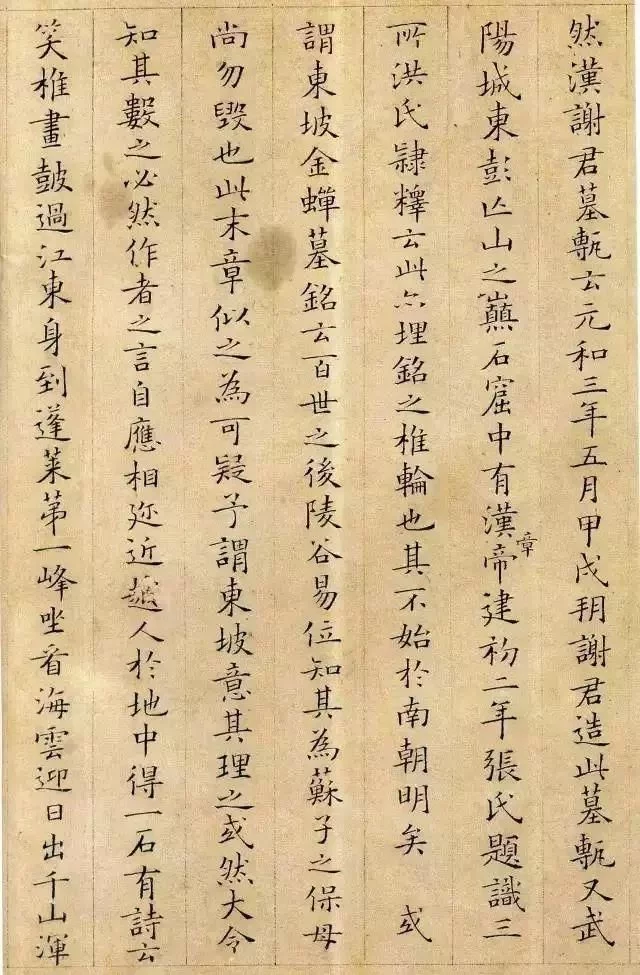 然漢謝君墓甎云元和三年五月甲戌朔謝君造此墓甎又武
陽城東彭亾山之巔石窟中有漢章帝建初二年張氏題識三
所洪氏隷釋云此亦埋銘之椎輪也其不始於南朝明矣 或
謂東坡金蟬墓銘云百世之後陵谷易位知其為蘇子之保母
尚勿毀也此末章似之為可疑予謂東坡意其理之或然大令
知其數之必然作者之言自應相近越人於地中得一石有詩云
笑椎畫鼓過江東身到蓬萊苐一峰坐看海雲迎日出千山渾